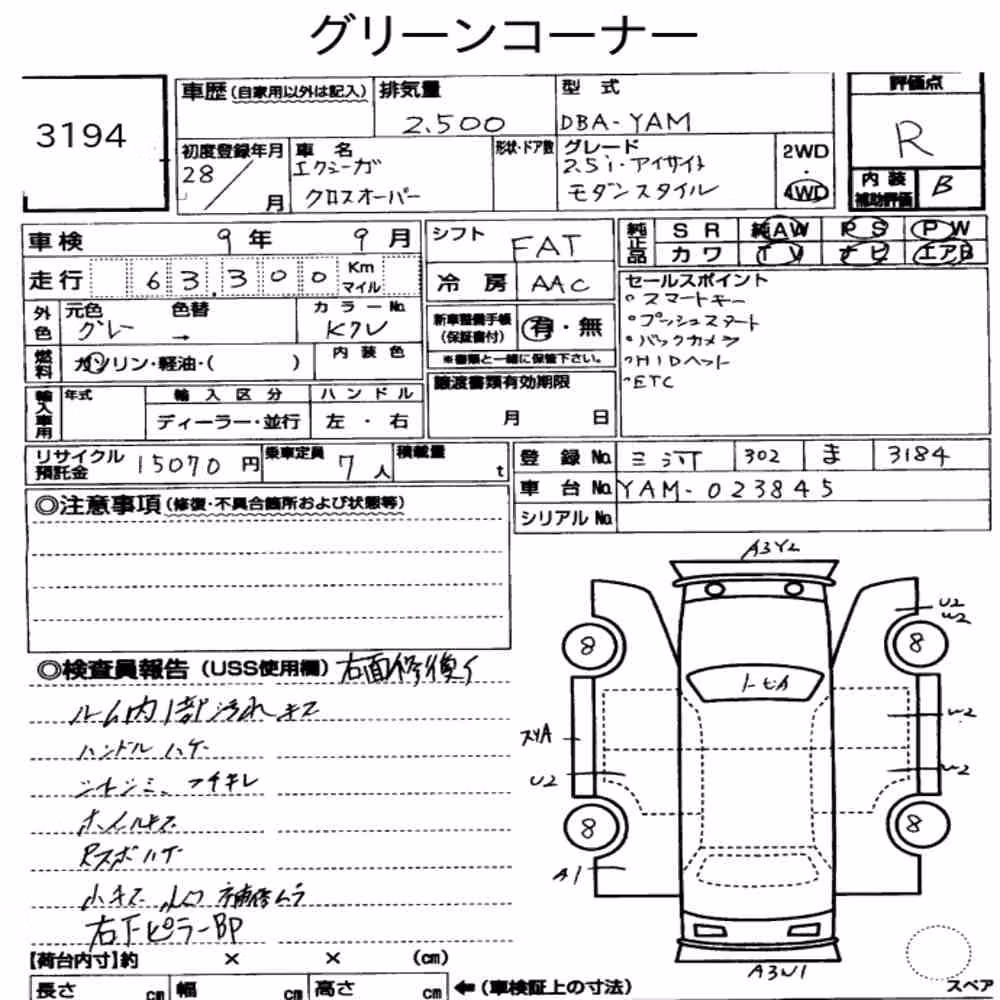 グリーンコーナー
3194
車歴(自家用以外は記入)
排気量
2.500
型式
DBA-YAM
評価点
R
初度登録年月
28
月
車名
エクシーガ
クロスオーバー
形状・ドア数
グレード
2.5i・アイサイト
モダンスタイル
2WD
4WD
内装
補助評価
B
車検
9年
9月
シフト
FAT
純正品
SR
純AW
PS
PW
カワ
TV
ナビ
エアB
走行
63,300
Km
マイル
冷房
AAC
セールスポイント
°スマートキー
°プッシュスタート
°バックカメラ
°HIDヘット
°ETC
外色
元色
グレー
→
色替
カラーNo.
新車整備手帳
(保証書付)
有・無
※書類と一緒に保管下さい。
燃料
ガソリン・軽油・( )
内装色
譲渡書類有効期限
月 日
輸入車用
年式
輸入区分
ディーラー・並行
ハンドル
左・右
リサイクル
預託金
15070円
乗車定員
7人
積載量
t
登録No.
302
ま
3184
車台No.
YAM-023845
シリアルNo.
◎注意事項(修復・不具合箇所および状態等)
◎検査員報告(USS使用欄)
右面修復イ
ルーム内1部汚れキズ
ハンドルハゲ
シートシミ、コゲキレ
ホイルキズ
Rスポハゲ
小キズ 凹 補修ムラ
右下ピラーBP
A3Y2
U2
W2
8
8
トヒ
W2
W2
U2
8
8
A1
A3U1
スペア
【荷台内寸】約 × × (cm)
長さ cm 幅 cm 高さ cm
←(車検証上の寸法)